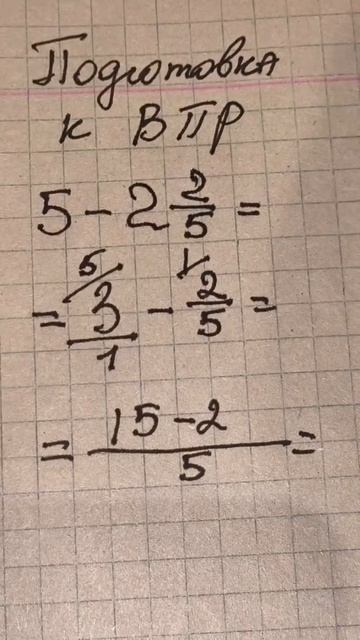 Подготовка
к ВПР
5 - 2 2/5 =
= 3/1 5/ - 2/5 1/ =
= 15-2/5 =